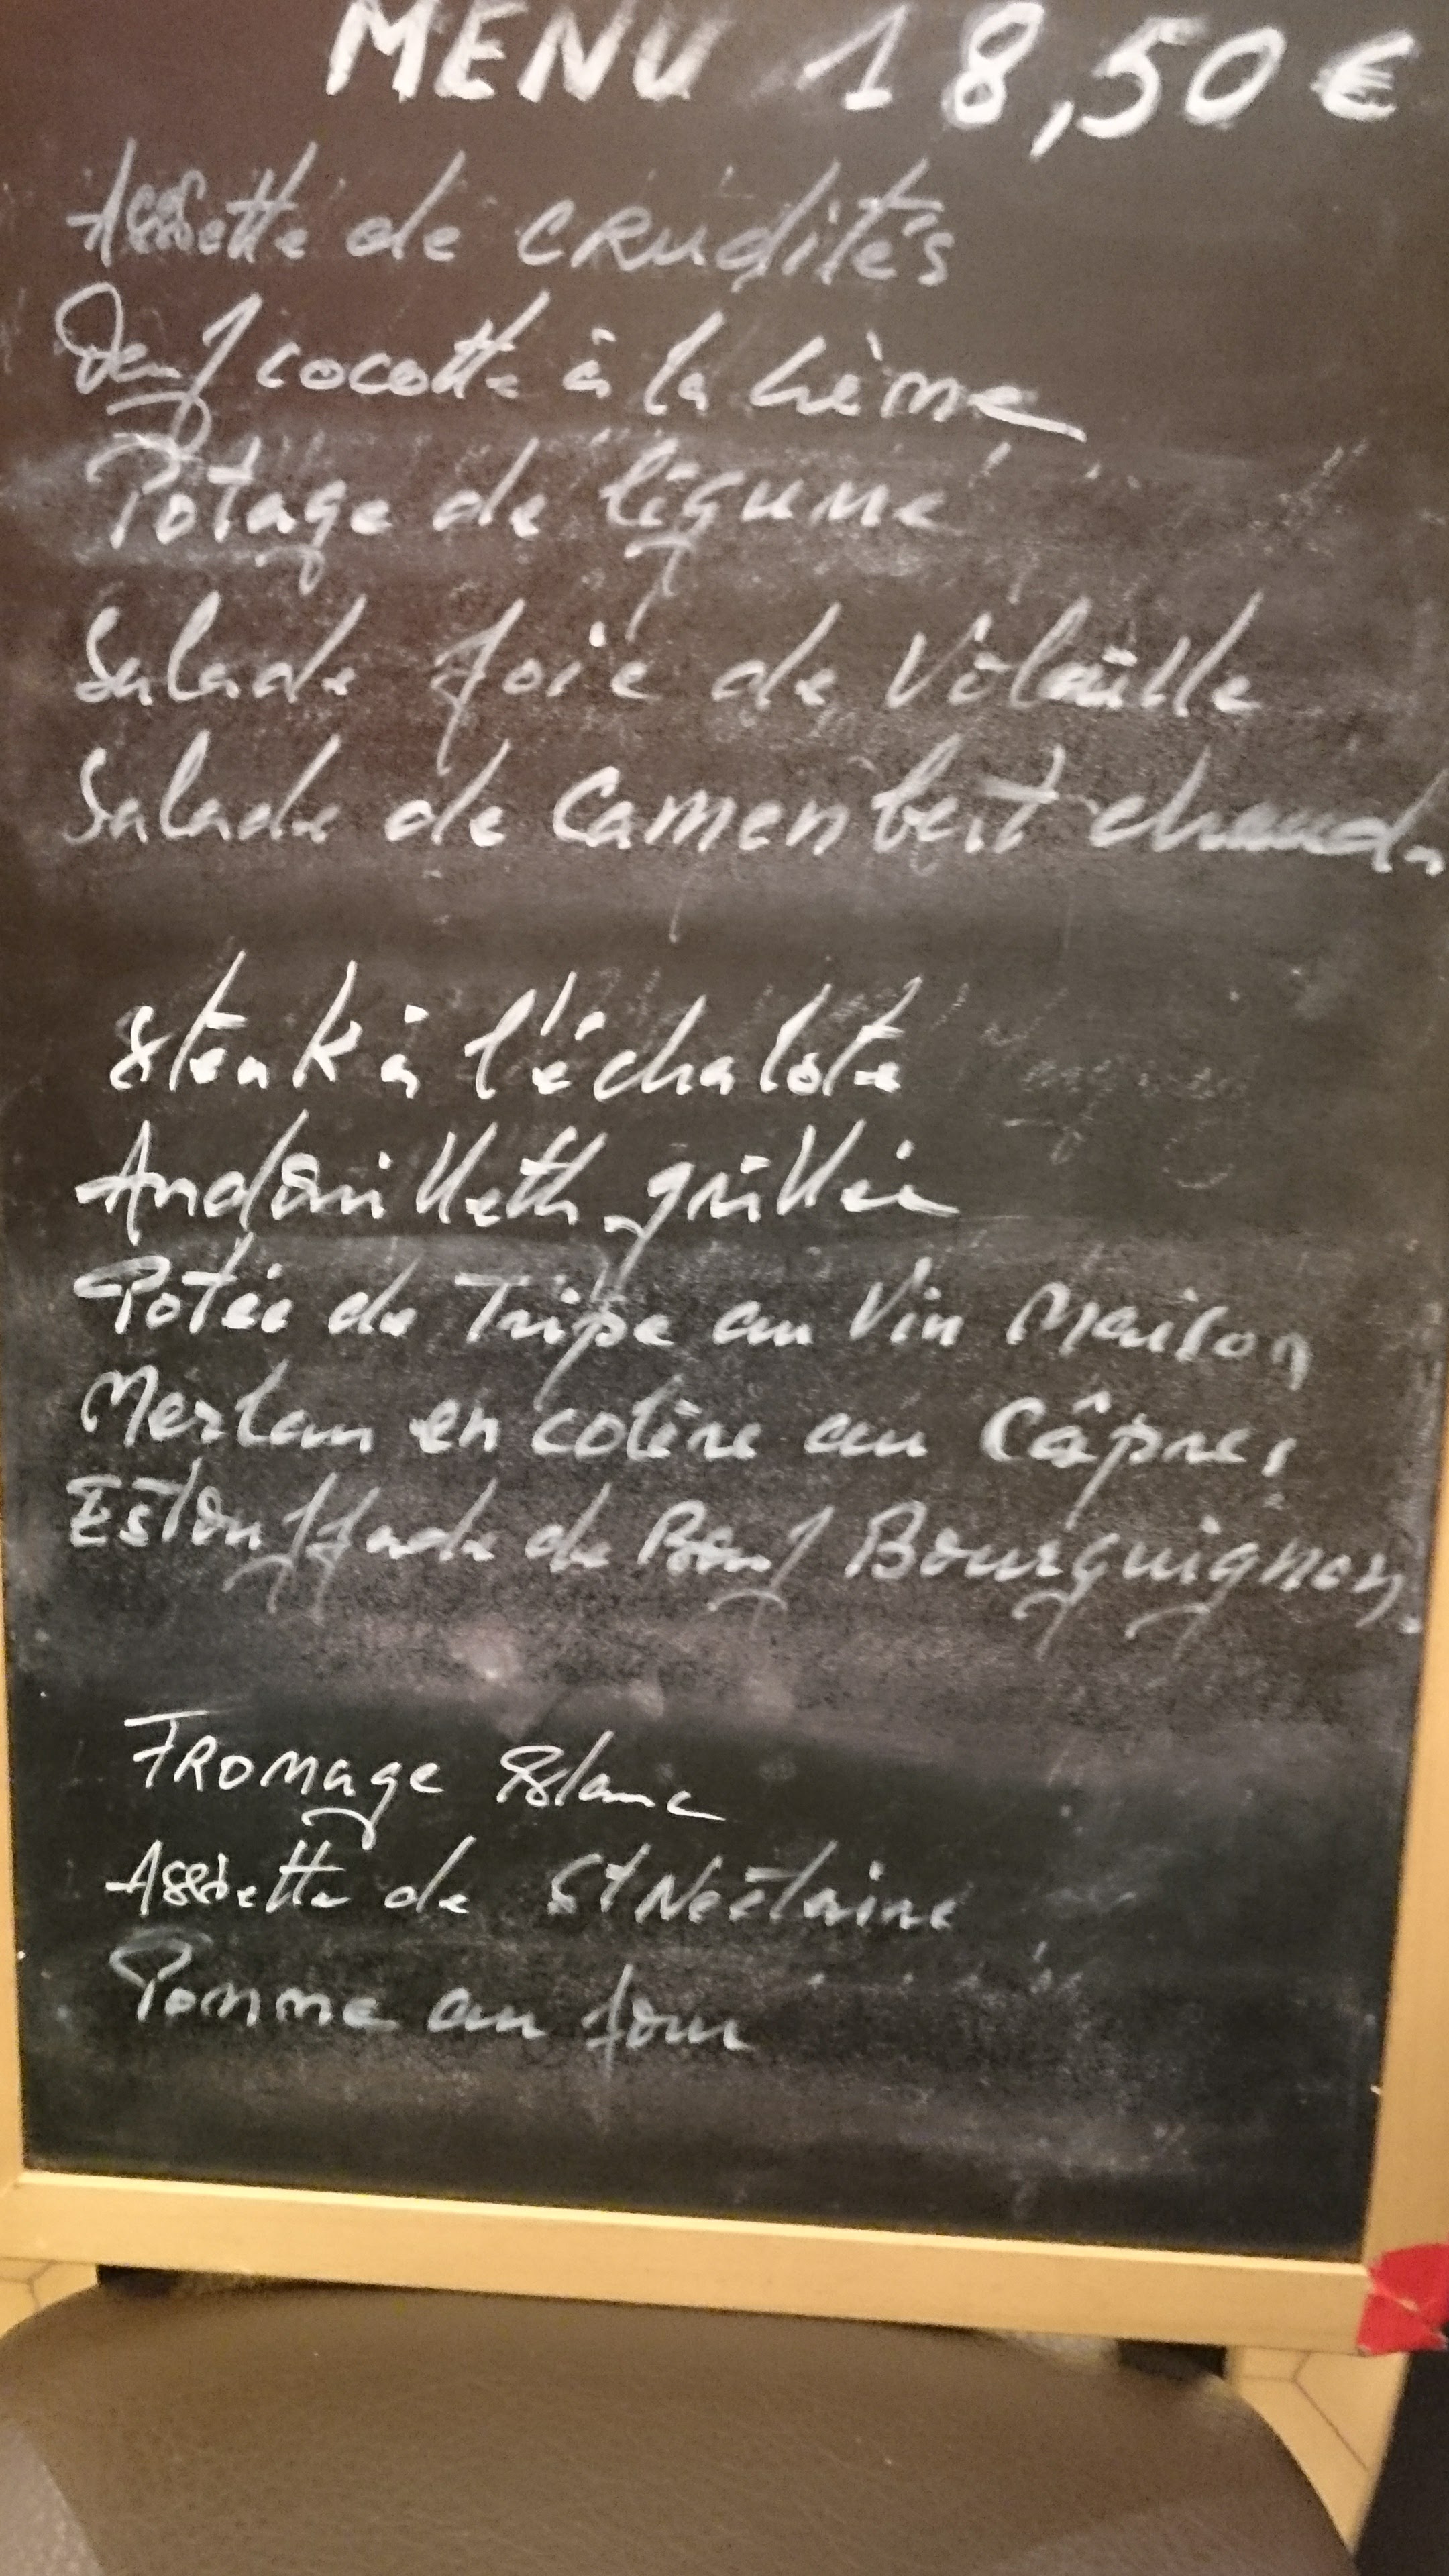 MENU 18,50 €
Assiette de CRudités
Oeuf cocotte à la crème
Potage de légume
Salade foie de Volaille
Salade de Camenbert chaud
Steak à l'échalote
Andouillette grillée
Potée de Tripe au Vin Maison
Merlan en colère au Câpres
Estouffade de Boeuf Bourguignon
FROMage Blanc
Assiette de St Nectaire
Pomme au four